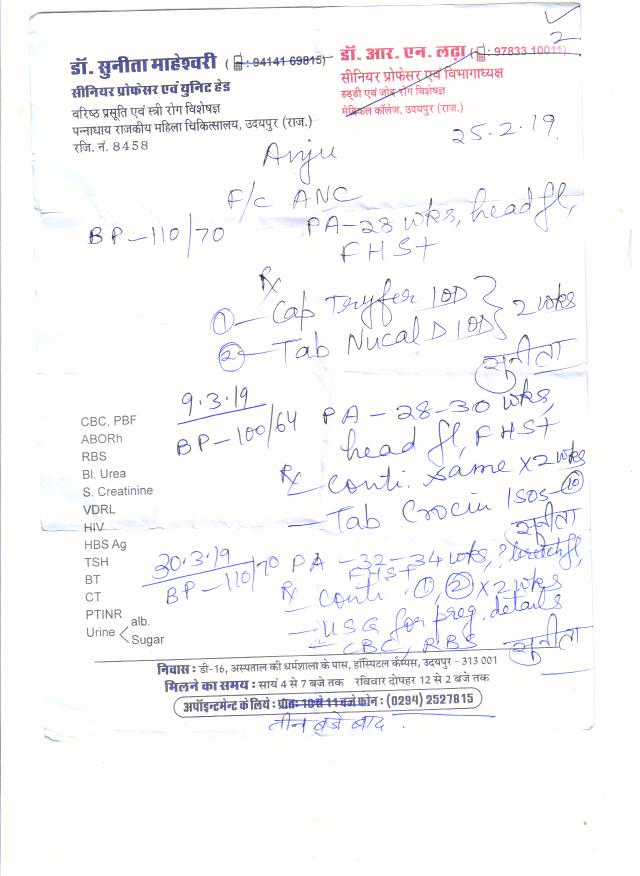 2
डॉ. सुनीता माहेश्वरी ( : 9414169815)
सीनियर प्रोफेसर एवं यूनिट हेड
वरिष्ठ प्रसूति एवं स्त्री रोग विशेषज्ञ
पन्नाधाय राजकीय महिला चिकित्सालय, उदयपुर (राज.)
रजि. नं. 8458
डॉ. आर. एन. लढ़ा ( : 97833 10011)
सीनियर प्रोफेसर एवं विभागाध्यक्ष
हड्डी एवं जोड़ रोग विशेषज्ञ
मेडिकल कॉलेज, उदयपुर (राज.)
25.2.19
Anju
F/c ANC
BP-110/70
PA-28 wks, head fl,
FHS+
Rx
① Cap Tryfer 1OD
② Tab Nucal D 1OD } 2 wks
सुनीता
9.3.19
BP-100/64 PA-28-30 wks,
head fl, FHS+
Rx conti. same x 2 wks
- Tab Crocin 1SOS-⑩
सुनीता
30.3.19
BP-110/70 PA-32-34 wks, ? breech fl,
FHS+
Rx conti. ①, ② x 2 wks
- USG for preg. details
- CBC, RBS
सुनीता
CBC, PBF
ABORh
RBS
Bl. Urea
S. Creatinine
VDRL
HIV
HBS Ag
TSH
BT
CT
PTINR
Urine < alb.
Sugar
निवास : डी-16, अस्पताल की धर्मशाला के पास, हॉस्पिटल कैम्पस, उदयपुर - 313 001
मिलने का समय : सायं 4 से 7 बजे तक रविवार दोपहर 12 से 2 बजे तक
अपॉइन्टमेन्ट के लिये : प्रातः 10 से 11 बजे फोन : (0294) 2527815
तीन बजे बाद.